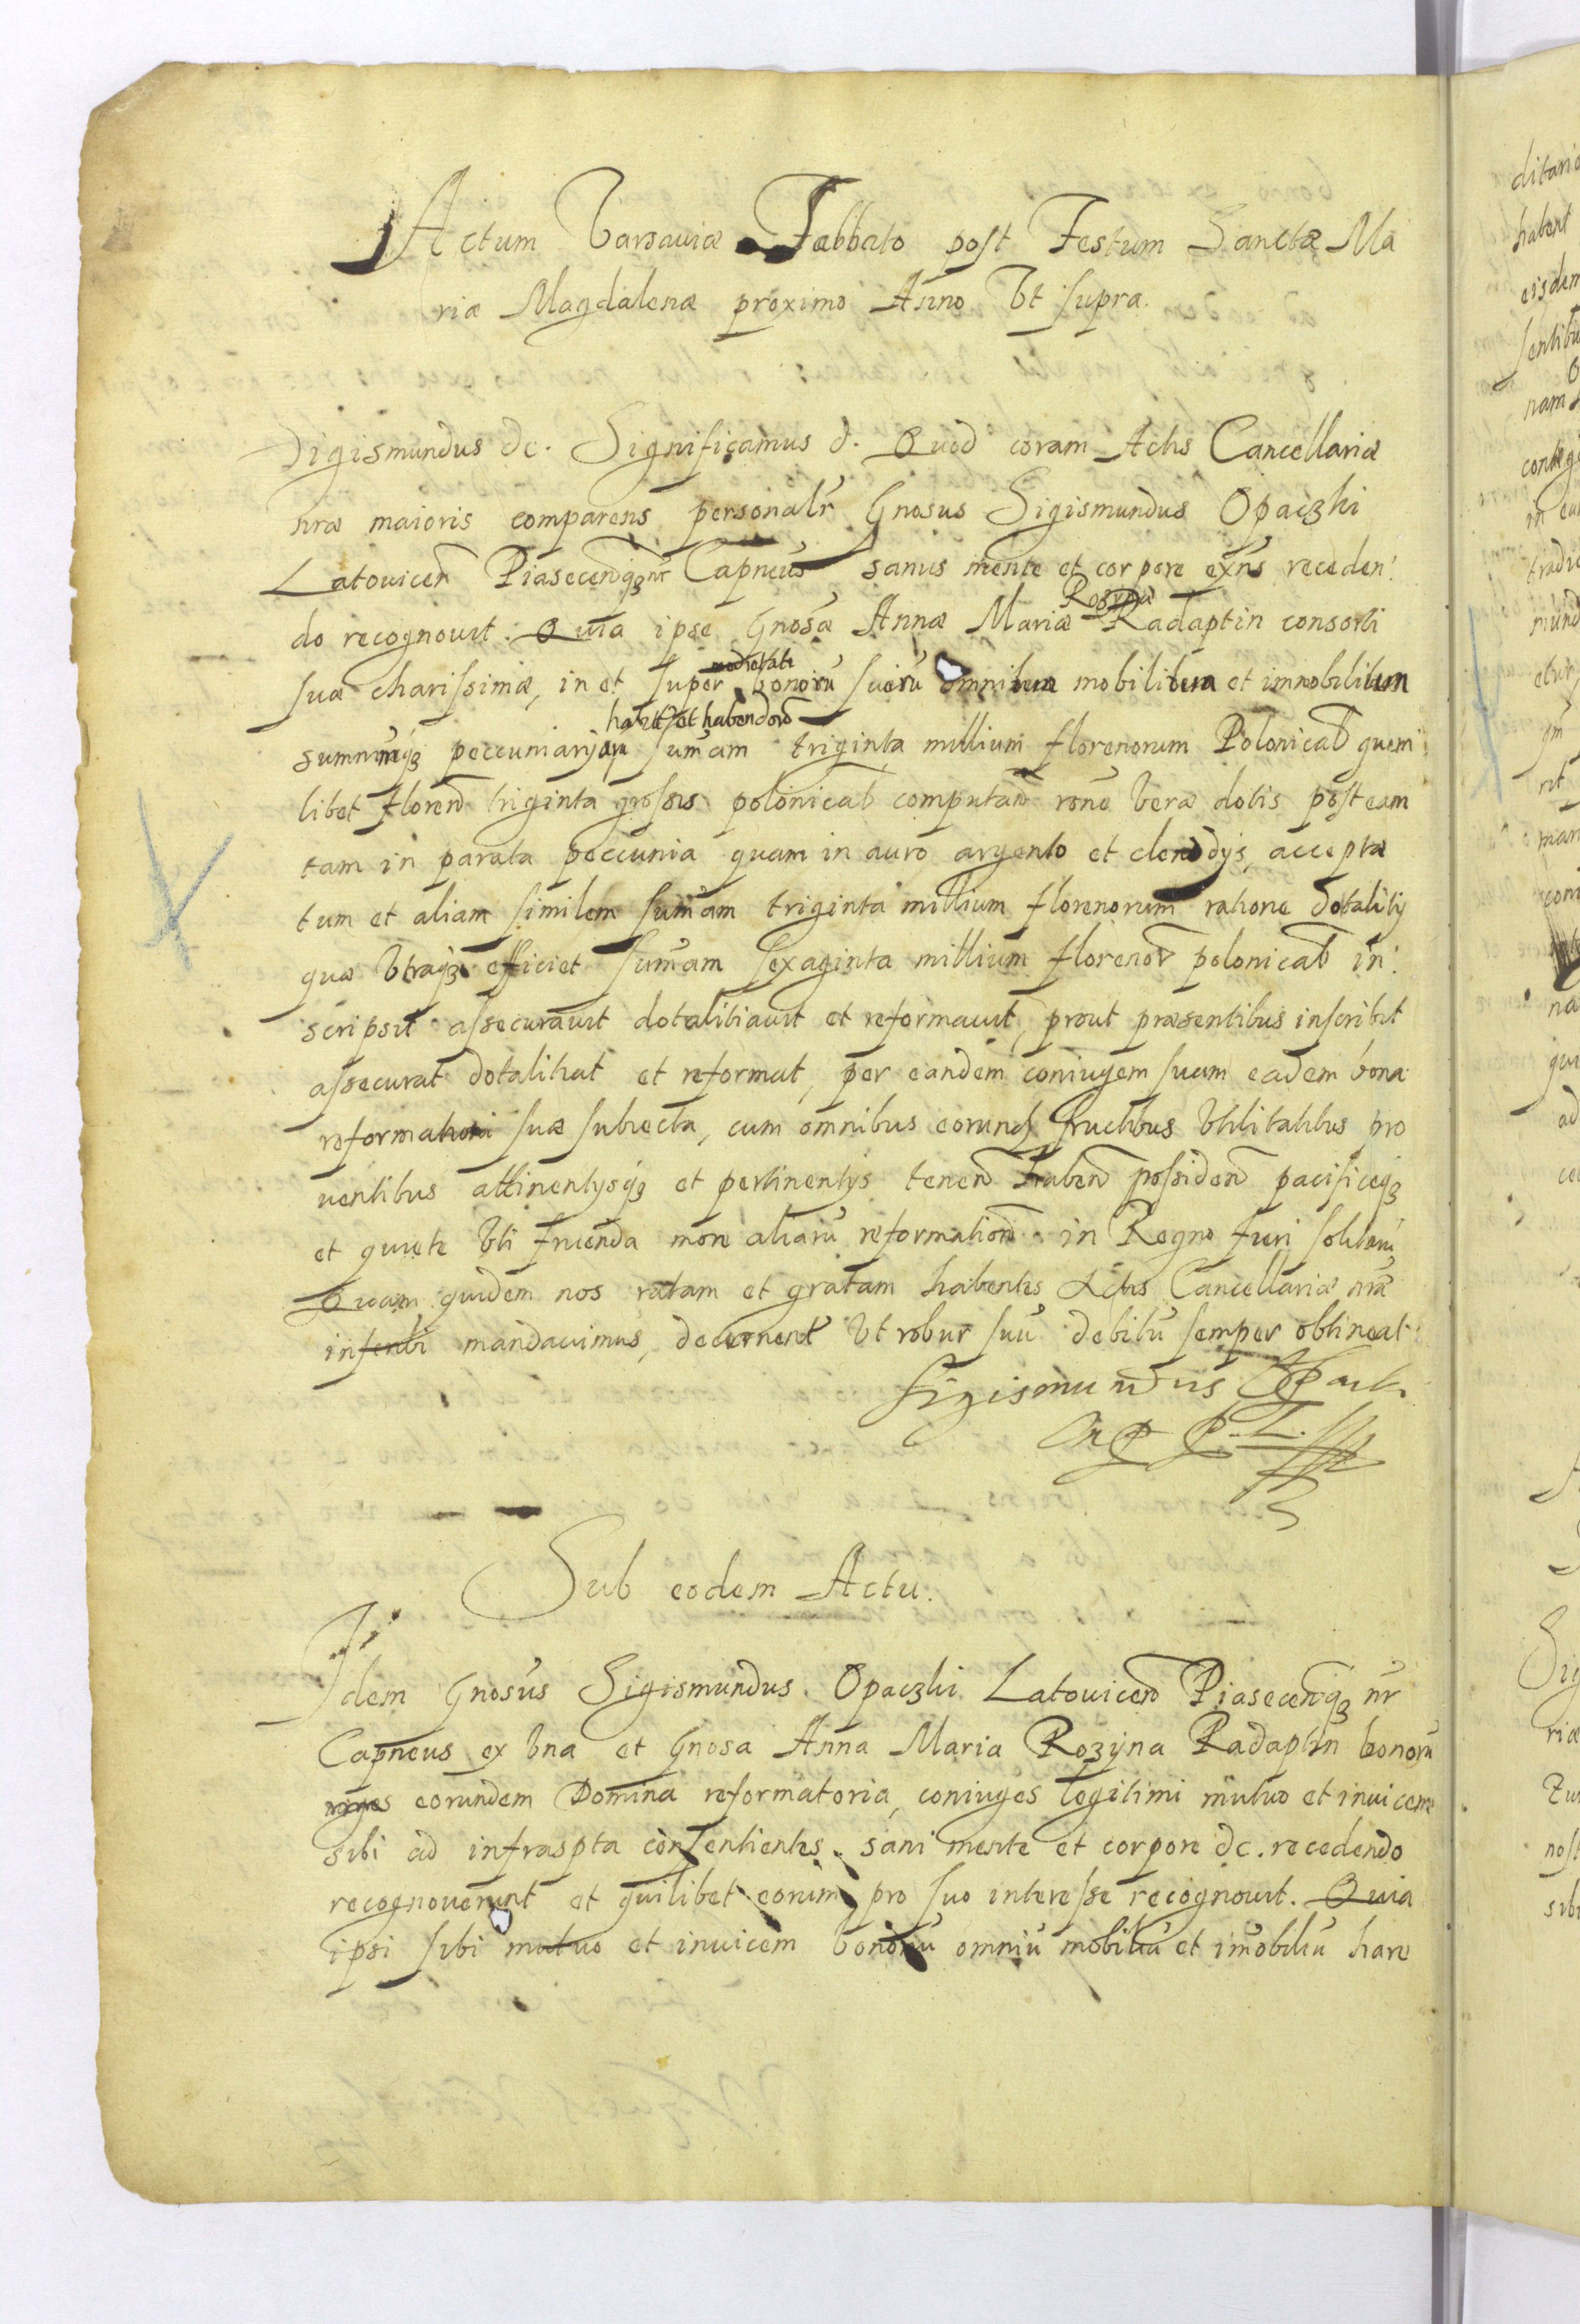 Actum Varsauiæ Sabbato post Festum Sanctæ Ma
riæ Magdalenæ proximo Anno Vt supra.
Sigismundus &c. Significamus &. Quod coram Actis Cancellariæ
nræ maioris comparens personalr Gnosus Sigismundus Opaczki
Latouicen Piasecenqз nr Capneus sanus mente et corpore exns receden:
Rozyna
do recognouit. Quia ipse Gnosæ Annæ Mariæ Radaptin consorti
medietate
suæ charissimæ, in et super bonorũ suorũ omnium mobilium et immobilium
habit et habendorũ
summũqз peccuniarum sumam triginta millium florenorum Polonical quem
libet floren triginta grossis polonical computan rone veræ dotis post eam
tam in parata peccunia quam in auro argento et clenodys acceptæ
tum et aliam similem sumam triginta millium florenorum ratione dotality
quæ Vtraqз efficiet sumam sexaginta millium florenor polonical in:
scripsit assecurauit dotalitiauit et reformauit, prout præsentibus inscribit
assecurat dotalitiat et reformat, per eandem coniugem suam eadem bona
reformationi suæ subiecta, cum omnibus eorund fructibus Vtilitatibus pro
uentibus attinentysqз et pertinentys tenen haben possiden pacificeqз
et quiete Vti fruenda more aliarũ reformation in Regno fieri solitarũ
Quam quidem nos ratam et gratam habentes Actis Cancellariæ nræ
inseri mandauimus, decernent Vt robur suũ debitũ semper obtineat
Sigismundus Opack
Sub eodem Actu.
Idem Gnosus Sigismundus Opaczki Latouicen Piasecenqз nr
Capneus ex Vna et Gnosa Anna Maria Rozyna Radaptin bonorũ
eorundem Domina reformatoria, coniuges legitimi mutuo et inuicem
sibi ad infraspta consentientes sani mente et corpore &c. recedendo
recognouerunt et quilibet eorum pro suo interesse recognouit. Quia
ipsi sibi mutuo et inuicem bonorũ omniũ mobiliũ et imobiliũ hære